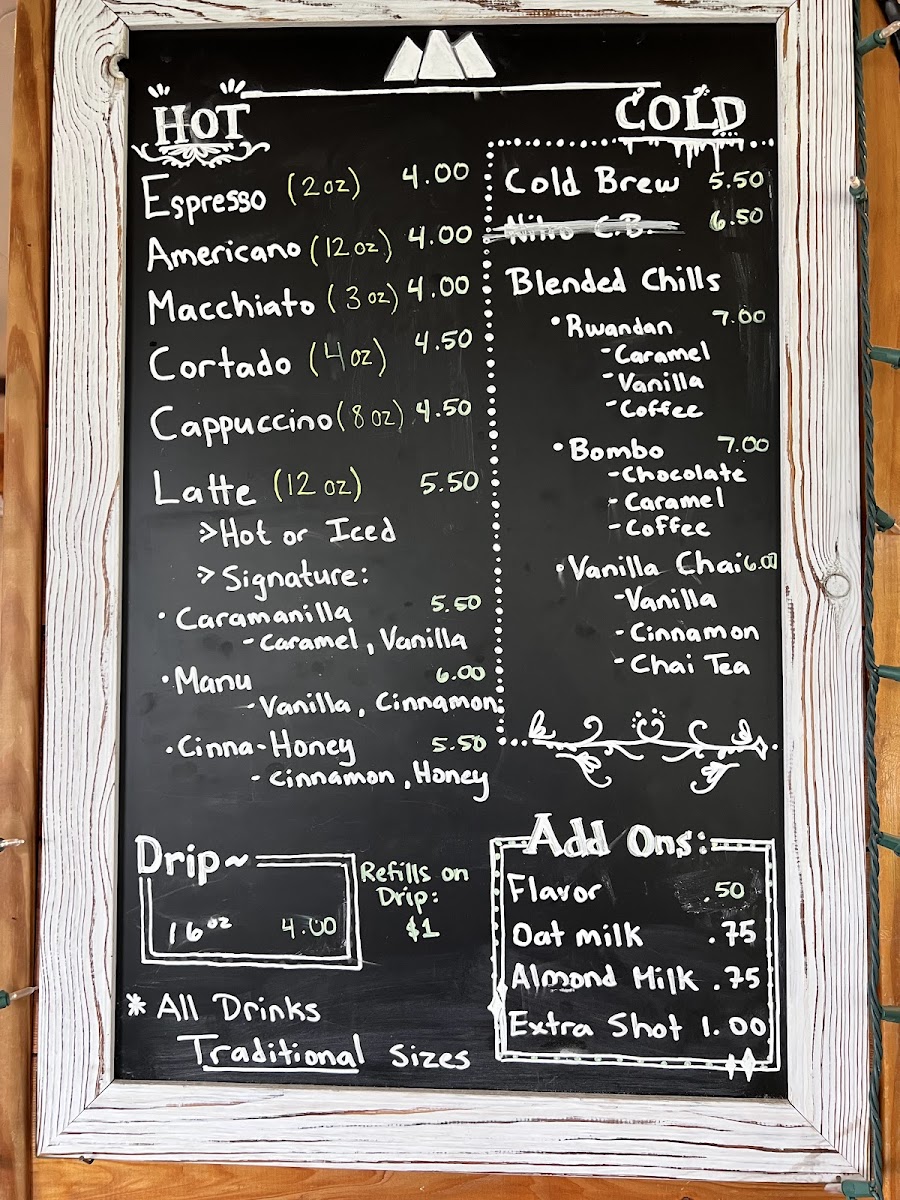 HOT
Espresso (2oz) 4.00
Americano (12 oz) 4.00
Macchiato (3 oz) 4.00
Cortado (4 oz) 4.50
Cappuccino (8 oz) 4.50
Latte (12 oz) 5.50
> Hot or Iced
> Signature:
• Caramanilla 5.50
- Caramel, Vanilla
• Manu 6.00
- Vanilla, Cinnamon
• Cinna-Honey 5.50
- Cinnamon, Honey
Drip~
16oz 4.00
Refills on
Drip:
$1
* All Drinks
Traditional Sizes
COLD
Cold Brew 5.50
Nitro C.B. 6.50
Blended Chills
• Rwandan 7.00
- Caramel
- Vanilla
- Coffee
• Bombo 7.00
- Chocolate
- Caramel
- Coffee
• Vanilla Chai 6.00
- Vanilla
- Cinnamon
- Chai Tea
Add Ons:
Flavor .50
Oat milk .75
Almond Milk .75
Extra Shot 1.00